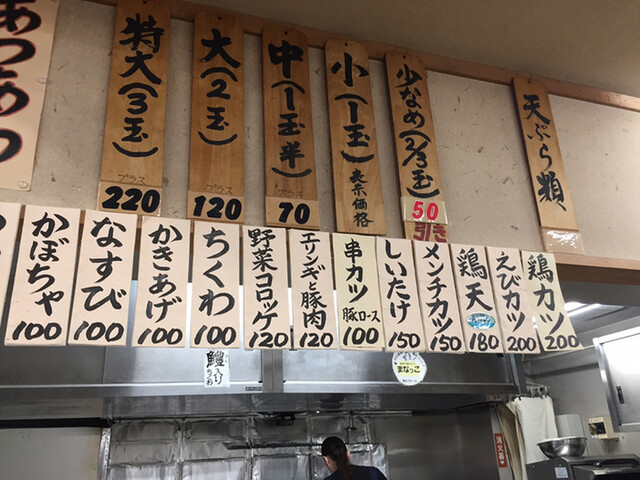 あつあつ
特大(3玉)
プラス
220
大(2玉)
プラス
120
中(1玉半)
プラス
70
小(1玉)
表示価格
少なめ(2/3玉)
50
引き
天ぷら類
かぼちゃ
100
なすび
100
かきあげ
100
ちくわ
100
野菜コロッケ
120
エリンギと豚肉
120
串カツ
豚ロース
100
しいたけ
150
メンチカツ
150
鶏天
180
えびカツ
200
鶏カツ
200
まなっこ
消火器